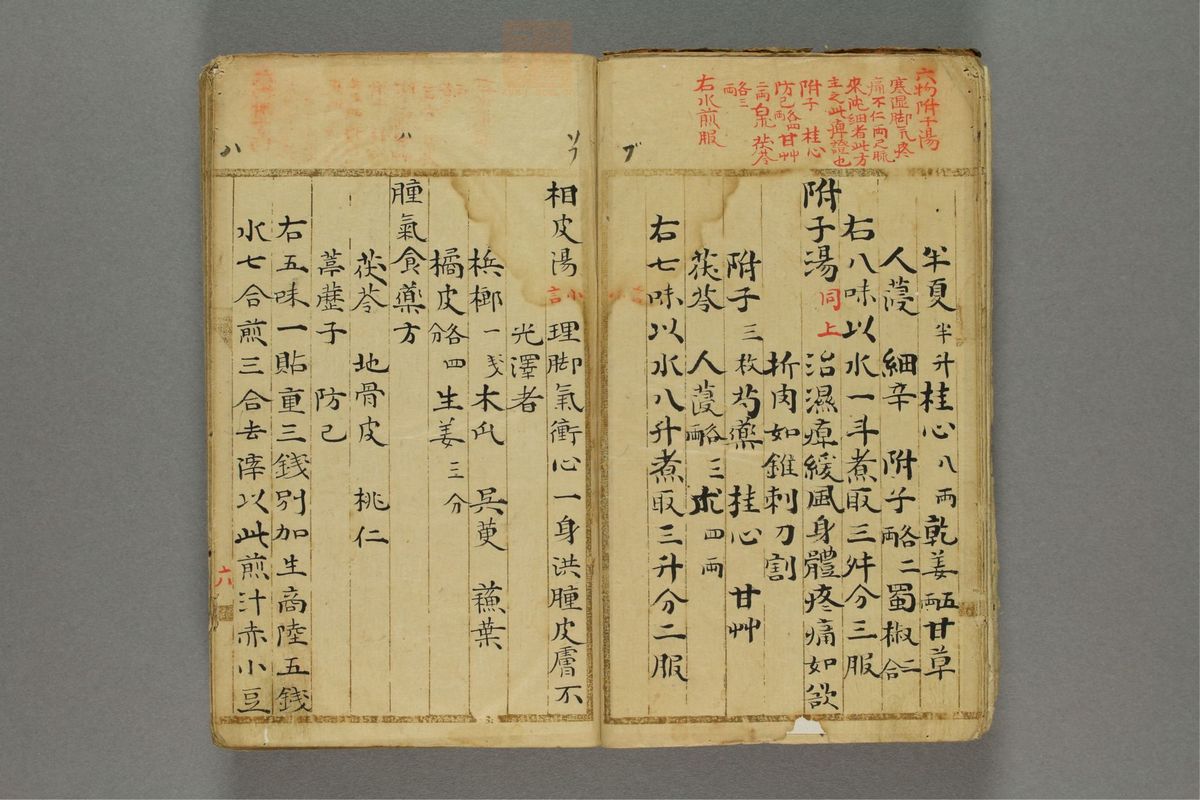 六物附子湯
寒湿脚氣疼
痛不仁両足脈
來沈細者此方
主之此痺證也
附子 桂心
防已各四両 甘艸
二両 白朮 茯苓
各三両
右水煎服
半夏半升 桂心八両 乾姜五両 甘草
人蓡 細辛 附子各二両 蜀椒二合
右八味以水一斗煮取三升分三服
附子湯 同上 治濕痺緩風身體疼痛如欲
折肉如錐刺刀割
附子三枚 芍藥 桂心 甘艸
茯苓 人蓡各三両 朮四両
右七味以水八升煮取三升分二服
相皮湯 理脚氣衝心一身洪腫皮膚不
光澤者
檳榔一戔 木瓜 呉茰 蘓葉
橘皮各四分 生姜三分
腫氣食藥方
茯苓 地骨皮 桃仁
葶藶子 防已
右五味一貼重三錢別加生商陸五錢
水七合煎三合去滓以此煎汁赤小豆
六